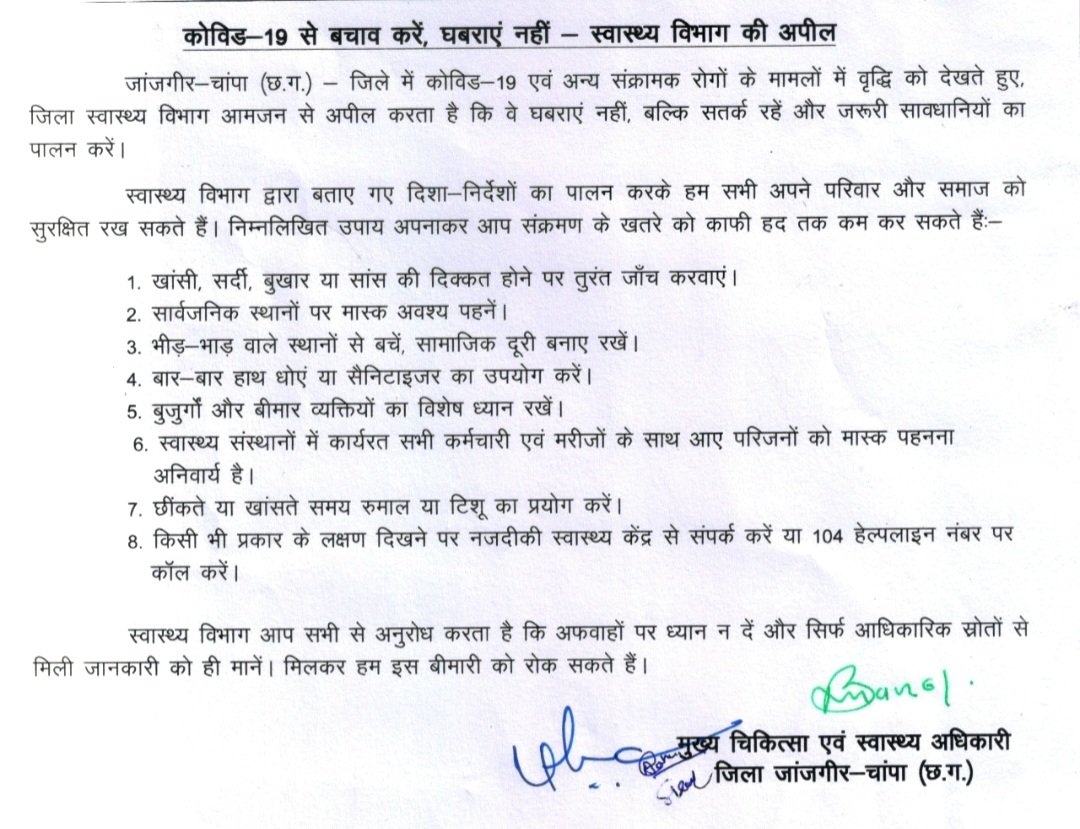 कोविड–19 से बचाव करें, घबराएं नहीं – स्वास्थ्य विभाग की अपील
जांजगीर–चांपा (छ.ग.) – जिले में कोविड–19 एवं अन्य संक्रामक रोगों के मामलों में वृद्धि को देखते हुए,
जिला स्वास्थ्य विभाग आमजन से अपील करता है कि वे घबराएं नहीं, बल्कि सतर्क रहें और जरूरी सावधानियों का
पालन करें।
स्वास्थ्य विभाग द्वारा बताए गए दिशा–निर्देशों का पालन करके हम सभी अपने परिवार और समाज को
सुरक्षित रख सकते हैं। निम्नलिखित उपाय अपनाकर आप संक्रमण के खतरे को काफी हद तक कम कर सकते हैंः–
1. खांसी, सर्दी, बुखार या सांस की दिक्कत होने पर तुरंत जाँच करवाएं।
2. सार्वजनिक स्थानों पर मास्क अवश्य पहनें।
3. भीड़–भाड़ वाले स्थानों से बचें, सामाजिक दूरी बनाए रखें।
4. बार–बार हाथ धोएं या सैनिटाइजर का उपयोग करें।
5. बुजुर्गों और बीमार व्यक्तियों का विशेष ध्यान रखें।
6. स्वास्थ्य संस्थानों में कार्यरत सभी कर्मचारी एवं मरीजों के साथ आए परिजनों को मास्क पहनना
अनिवार्य है।
7. छींकते या खांसते समय रुमाल या टिशू का प्रयोग करें।
8. किसी भी प्रकार के लक्षण दिखने पर नजदीकी स्वास्थ्य केंद्र से संपर्क करें या 104 हेल्पलाइन नंबर पर
कॉल करें।
स्वास्थ्य विभाग आप सभी से अनुरोध करता है कि अफवाहों पर ध्यान न दें और सिर्फ आधिकारिक स्रोतों से
मिली जानकारी को ही मानें। मिलकर हम इस बीमारी को रोक सकते हैं।
मुख्य चिकित्सा एवं स्वास्थ्य अधिकारी
जिला जांजगीर–चांपा (छ.ग.)